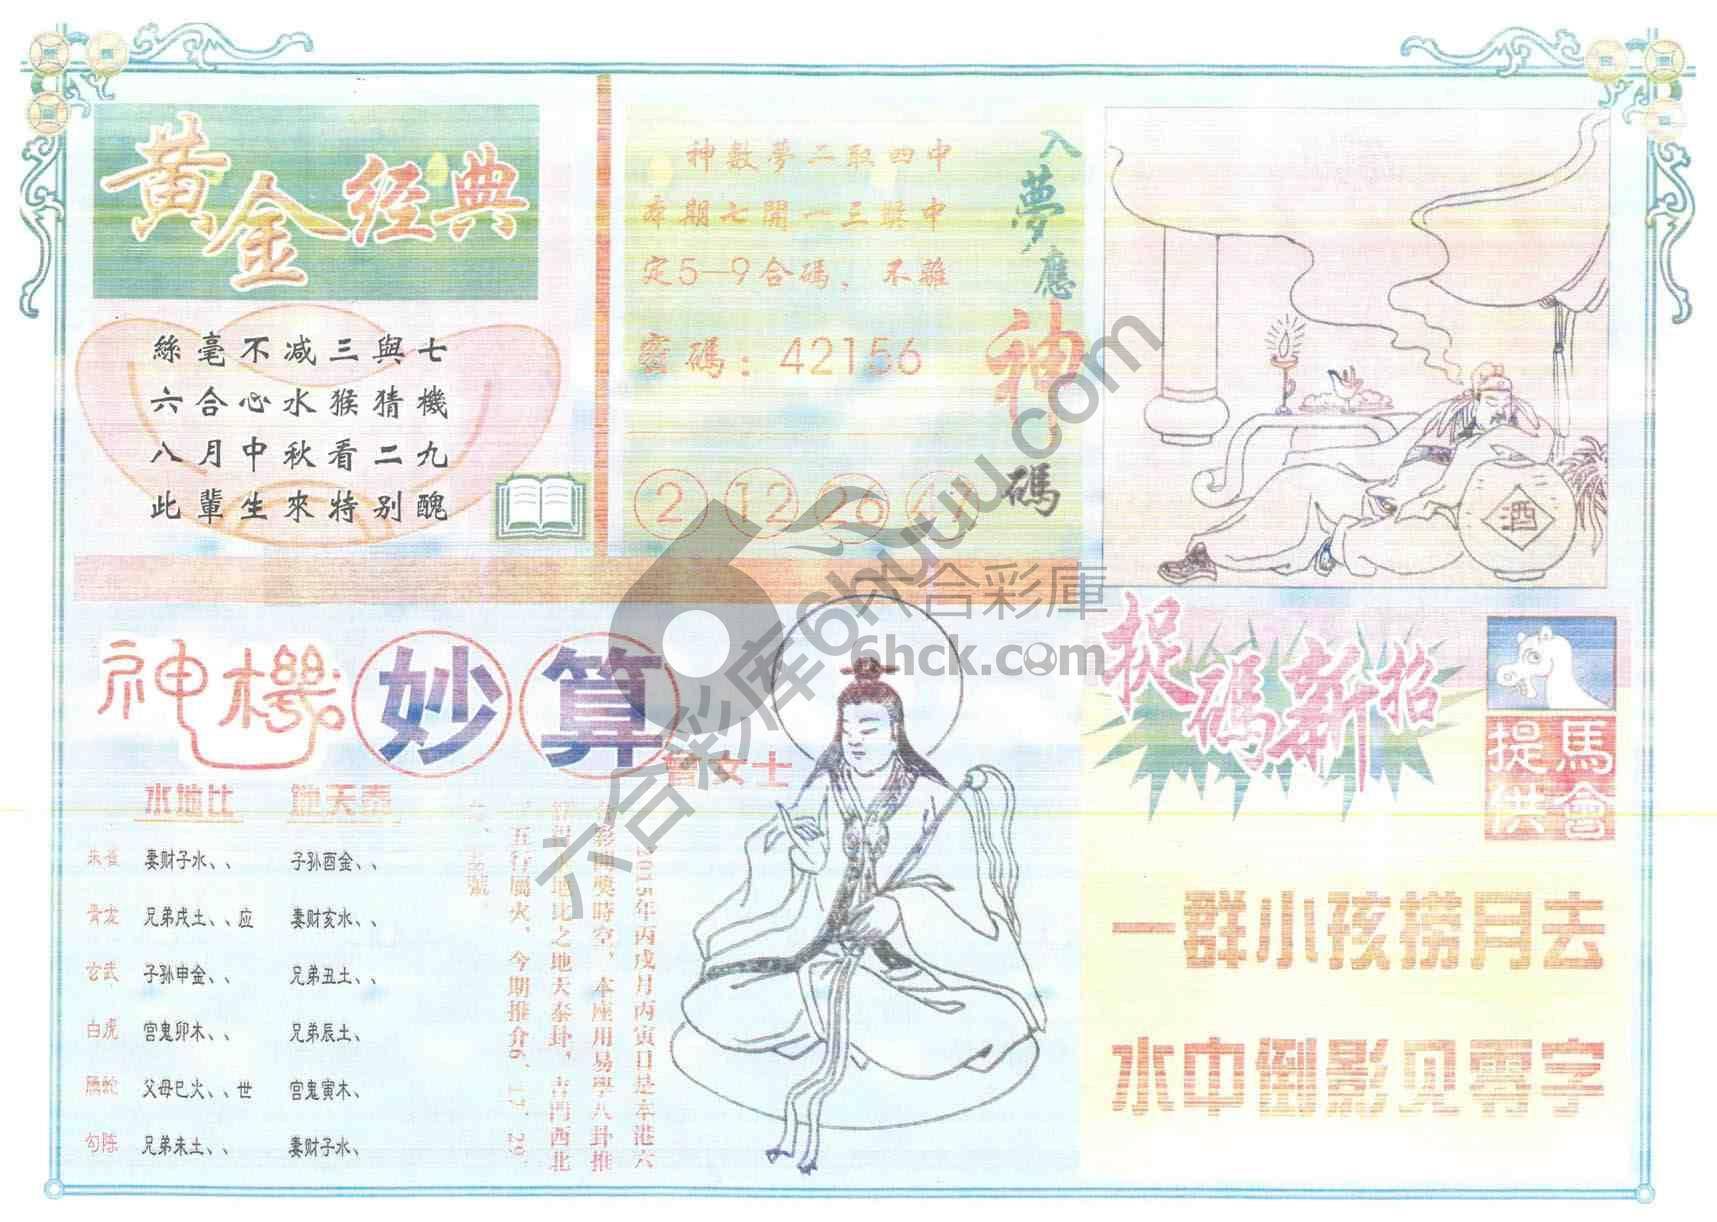 黄金经典
絲毫不减三與七
六合心水猴猜機
八月中秋看二九
此輩生來特别醜
神數夢二取四中
本期七開一三獎中
定5—9合碼、不離
密碼：42156
2 12 26
入夢應神碼
酒
神機妙算
曾女士
水地比 地天泰
朱雀 妻财子水、、 子孙酉金、、
青龙 兄弟戌土、、应 妻财亥水、、
玄武 子孙申金、、 兄弟丑土、、
白虎 官鬼卯木、、 兄弟辰土、
腾蛇 父母巳火、、世 官鬼寅木、
勾陈 兄弟未土、、 妻财子水、
2015年丙戌月丙寅日是本港六
彩開獎時空，本座用易學八卦推
地比之地天泰卦，吉門西北
五行屬火，今期推介6、17、29、
號。
捉碼新招
馬會提供
一群小孩捞月去
水中倒影见零字
六合彩库6huuu.com
六合彩庫
6hck.com